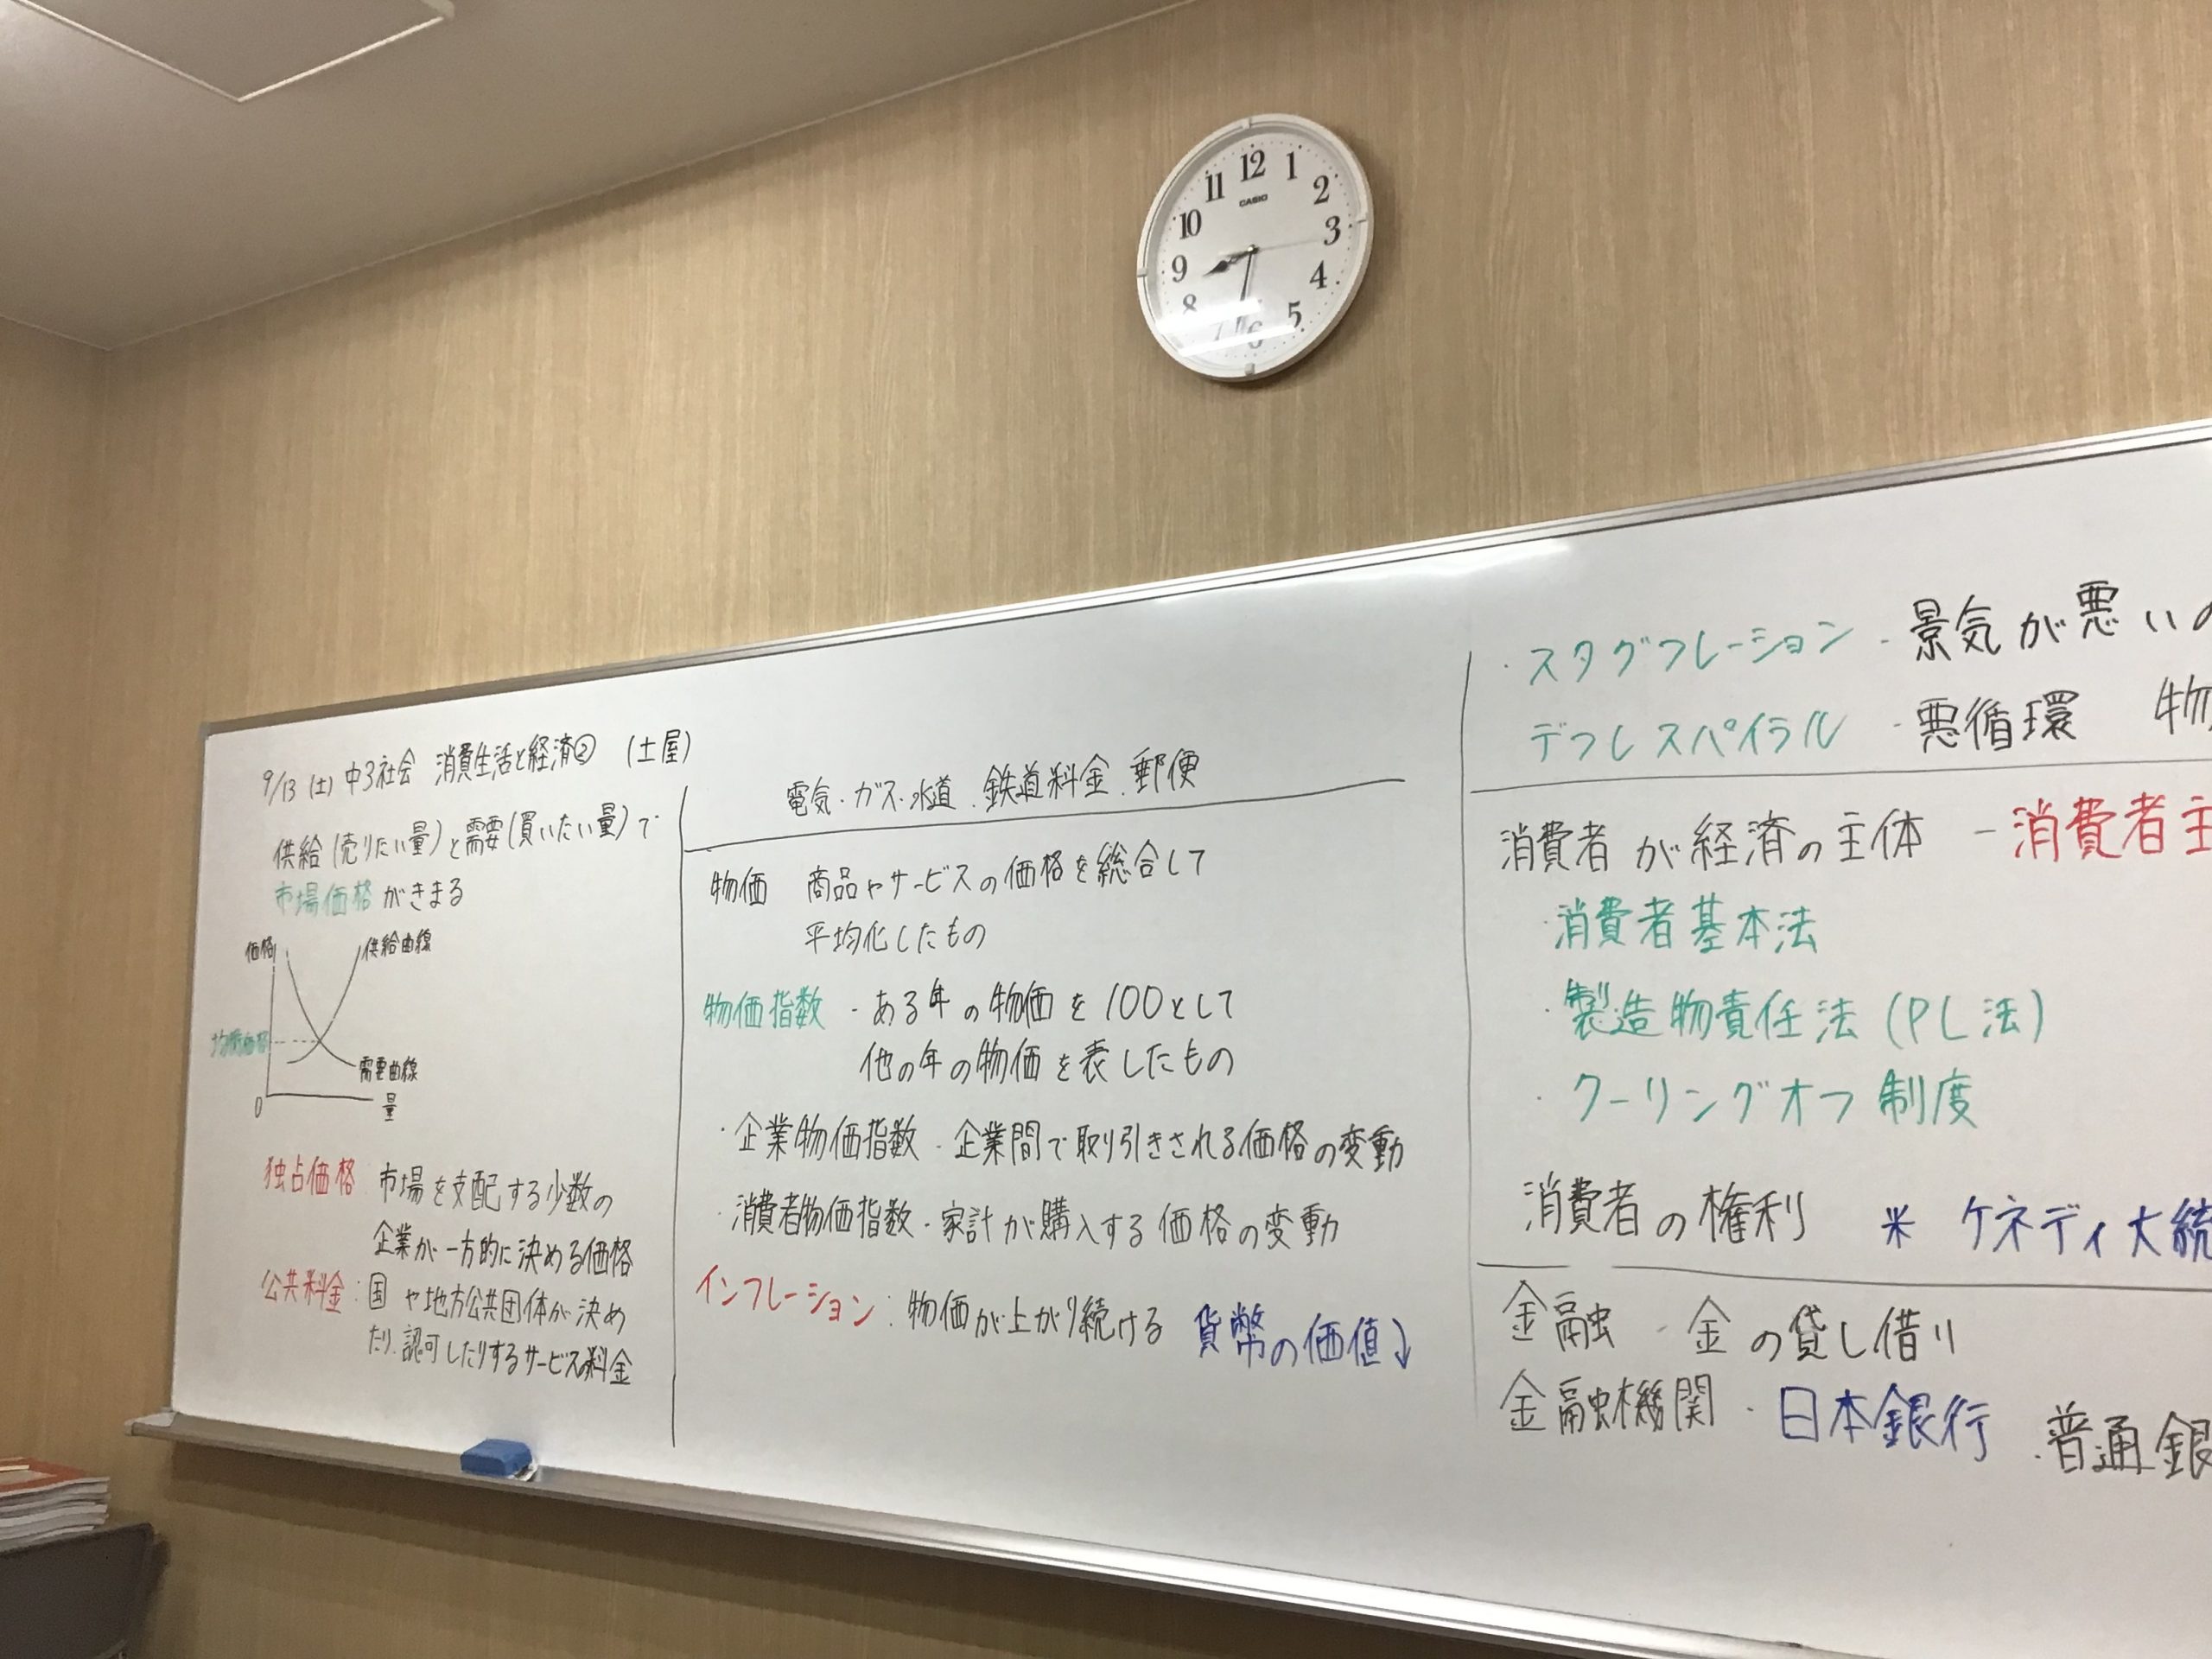 12
1
2
3
4
5
6
7
8
9
10
11
CASIO
9/13 (土) 中3社会 消費生活と経済② (土屋)
供給(売りたい量)と需要(買いたい量)で
市場価格がきまる
価格
供給曲線
均衡価格
需要曲線
0
量
独占価格 市場を支配する少数の
企業が一方的に決める価格
公共料金:国や地方公共団体が決め
たり、認可したりするサービスの料金
電気・ガス・水道・鉄道料金・郵便
物価 商品やサービスの価格を総合して
平均化したもの
物価指数 - ある年の物価を100として
他の年の物価を表したもの
・企業物価指数 - 企業間で取り引きされる価格の変動
・消費者物価指数 - 家計が購入する価格の変動
インフレーション:物価が上がり続ける 貨幣の価値↓
・スタグフレーション - 景気が悪いの
デフレスパイラル - 悪循環 物
消費者が経済の主体 - 消費者主
・消費者基本法
・製造物責任法(PL法)
・クーリングオフ制度
消費者の権利 米 ケネディ大統
金融 - 金の貸し借り
金融機関 - 日本銀行 ・普通銀